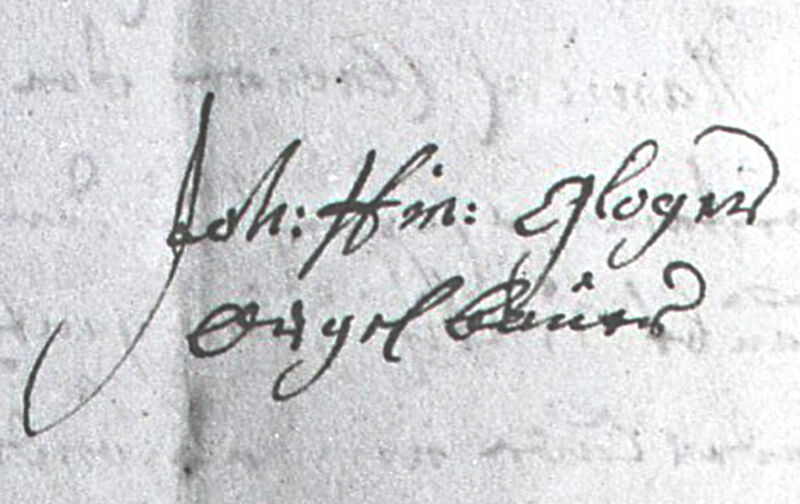 Joh: Hin: Gloger
Orgel Bauer